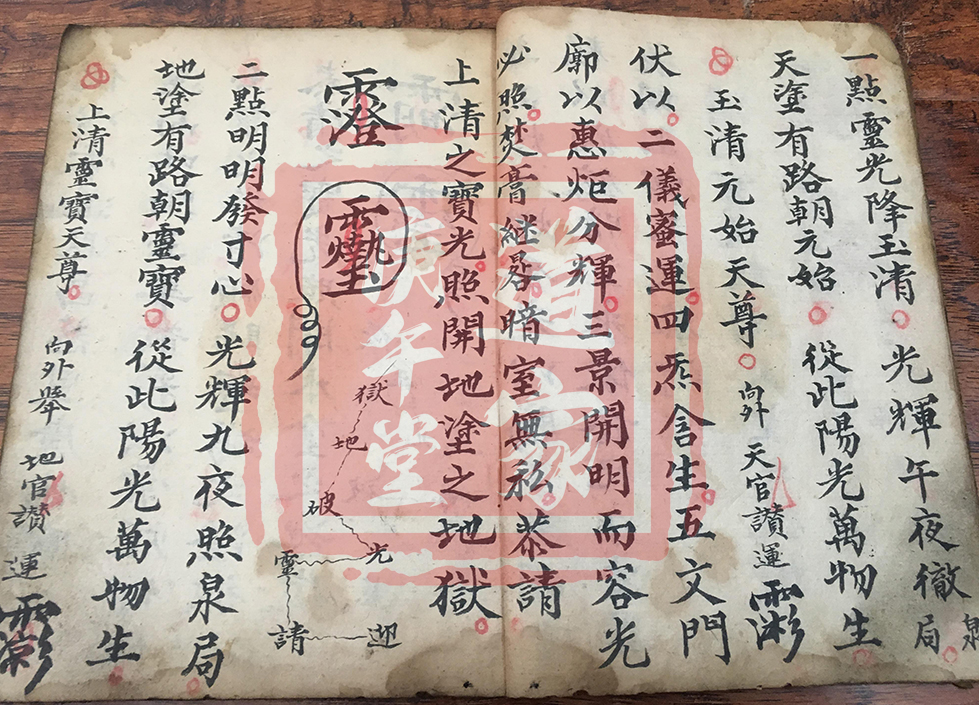 一點靈光降玉清 光輝午夜徹泉局
天塗有路朝元始 從此陽光萬物生
玉清元始天尊 向外 天官讚運
伏以 二儀密運四炁含生五文門
廓以惠炬分輝三景開明而容光
必照焚膏継晷暗室無私恭請
上清之寶光照開地塗之地獄
獄地破光靈請迎
二點明明發寸心 光輝九夜照泉局
地塗有路朝靈寶 從此陽光萬物生
上清靈寶天尊 向外舉 地官讚運
道家
午堂